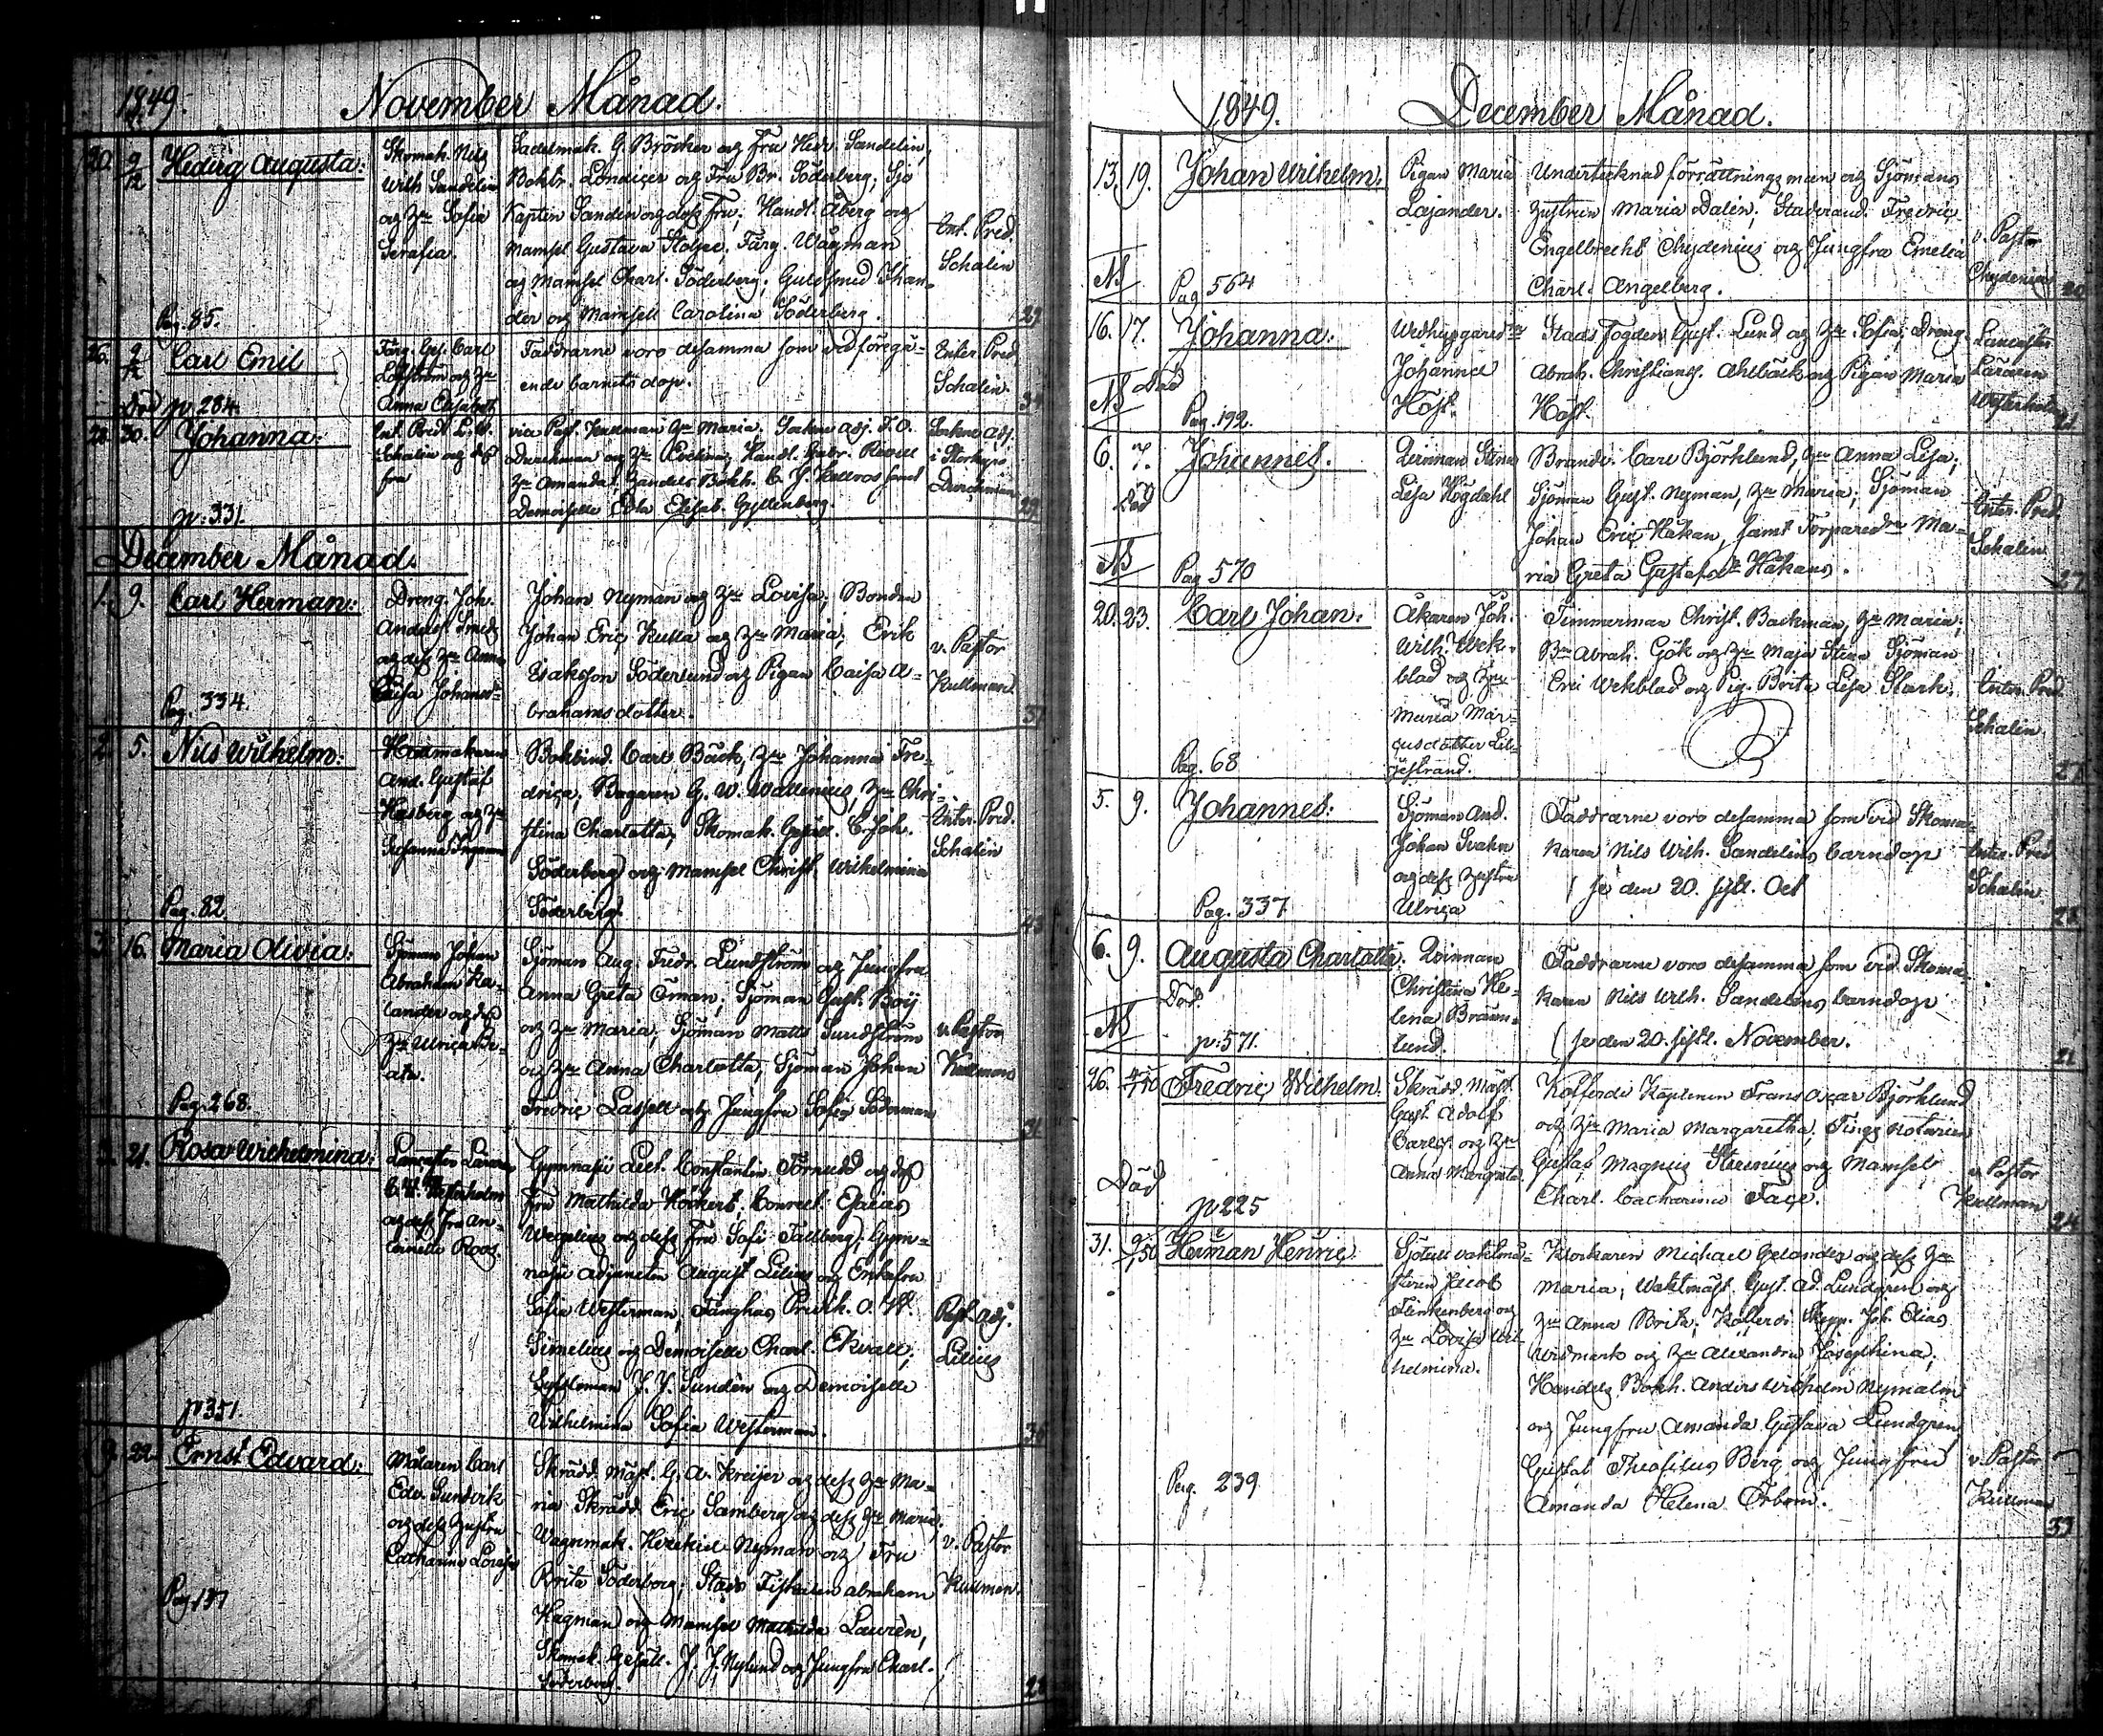 1849. November Månad.
20. 9/12 Hedvig Augusta:
Skomak. Nils
Wilh Sandelin
och Hu Sofia
Serafia.
Sadelmak. G. Bröcker och fru Hedv. Sandelin,
Boktr. Londicer och Fru Br. Söderberg; Sjö
Kapten Sanden och dess fru; Handl. Åberg och
Mamsel Gustava Stolpe; Färg. Wägman
och Mamsel Charl. Söderberg; Guldsmed
der och Mamsell Carolina Söderberg.
Ext. Pred.
Schalin
Pag. 85.
26. 9/12 Carl Emil
Färg. Ges. Carl
och Hu
Anna Elisabet
Faddrarne voro desamma som vid föregå-
ende barnets dop.
Exter. Pred
Schalin.
Död p. 284.
28. 30. Johanna:
Ext. Pred. L. W.
Schalin och dess
fru
vice Past. Kullman Hu Maria. Sockne adj. F. O.
Durchman och Hu Evelina, Handl. Gabr.
Hu Amanda, Handels Bokh. C. J. samt
Demoiselle Edla Elisab. Gyllenberg.
Sockne Adj.
i Storkyro
Durchman
29
p: 331.
December Månad.
1. 9. Carl Herman:
Dreng. Joh.
Anders. Smeds
och dess Hu Anna
Caisa Johansdr
Johan Nyman och Hu Lovisa; Bonden
Johan Eric Kulla och Hu Maria; Erik
Isaksson Söderlund och Pigan Caisa A-
brahamsdotter.
v. Pastor
Kullman
37
Pag. 334.
2. 5. Nils Wilhelm:
Hattmakaren
And. Gustaf
Hasberg och Hu
Susanna
Bokbind. Carl Bäck, Hu Johanna Fre-
drica; Bagaren G. W. Wallenius, Hu Chri-
stina Charlotta; Skomak. Gesäll. C. Joh.
Söderberg och Mamsel Christ. Wilhelmina
Söderberg.
Exter. Pred.
Schalin
43
Pag. 82.
3. 16. Maria Olivia:
Sjöman Johan
Abraham
lander och dess
Hu Ulrica Be-
ata.
Sjöman Aug. Fredr. Lundström och Jungfru
Anna Greta Öman; Sjöman Gust. Boij
och Hu Maria; Sjöman Matts Sundström
och Hu Anna Charlotta; Sjöman Johan
Fredric Lassell och Jungfru Sofia Söderman
v. Pastor
Kullman
31
Pag. 268.
21. Rosa Wilhelmina:
Lancaster Läraren
C. W. Westerholm
och dess fru An-
Cornelia Roos.
Gymnasii Lect. Constantin Törnudd och dess
fru Mathilda Höckert; Conrect. Esaias
Wegelius och dess Fru Sofi Tallberg; Gym-
nasii Adjuncten August Lilius och Enkefru
Sofia Westerman, Fänghus Predik. O. W.
Simelius och Demoiselle Charl. Ekvall;
J. J. Sundén och Demoiselle
Wilhelmina Sofia Westerman.
Past. Adj.
Lilius
36
p 351.
9. 22. Ernst Edvard:
Målaren Carl
Edv. Sundvik
och dess hustru
Catharina Lovisa
Skrädd. Mäst. G. A. Kreijer och dess Hu Ma-
ria Skrädd Eric Samberg och dess Hu Maria.
Wagnmak. Hezekiel Nyman och Fru
Brita Söderberg; Stads Fiskalen Abraham
Hagman och Mamsel Mathilda Laurén,
Skomak. Gesäll. J. J. Nylund och Jungfru Charl.
Söderberg.
v. Pastor
Kullman.
28
Pag. 137
1849. December Månad.
13. 19. Johan Wilhelm:
Pigan Maria
Lajander.
Undertecknad förrättningsman och Sjömans
hustrun Maria Dalin; Stadsrand. Fredric
Engelbrecht Chydenius och Jungfru Emelia
Charl. Angelberg.
v. Pastor
Chydenius
20
NB
Pag 564
16. 17. Johanna:
Johanna
Höst.
Stads Fogden Gust. Lund och Hu Sofia; Dreng.
Abrah. Christians. Ahlbäck och Pigan Maria
Höst.
Lancaster
Läraren
Westerholm
21
NB Död
Pag. 192.
6. 7. Johannes.
Qvinnan Stina
Lisa Högdahl
Brandv. Carl Björklund, Hu Anna Lisa;
Sjöman Gust. Nyman, Hu Maria; Sjöman
Johan Eric Håkan, samt Torparedr Ma-
ria Greta Gustafsdr Håkans.
Exter. Pred
Schalin
27
Död
NB
Pag 570
20. 23. Carl Johan:
Åkaren Joh.
Wilh. Wek-
blad och Hu
Maria Mar-
cusdotter Lil-
jestrand.
Timmerman Christ. Backman, Hu Maria;
Bn Abrah. Gök och Hu Maja Stina Sjöman
Eric Wekblad och Pig. Brita Lisa Stark.
Exter. Pred.
Schalin
27
Pag. 68
5. 9. Johannes:
Sjöman And.
Johan Svahn
och dess hustru
Ulrica
Faddrarne voro desamma som vid Skoma-
karen Nils Wilh. Sandelins barndop
(se den 20. sistl. Oct
Exter. Pred
Schalin
Pag. 337
6. 9. Augusta Charlotta:
Qvinnan
Christina He-
lena Brann-
lund.
Faddrarne voro desamma som vid Skoma-
karen Nils Wilh. Sandelins barndop
(se den 20. sistl. November.
21
Död.
NB
p: 571.
26. Fredric Wilhelm:
Skrädd. Mäst.
Gust. Adolf
Carls. och Hu
Anna Margreta
Kofferdi Kaptenen Frans Oscar Björklund
och Hu Maria Margaretha; Tings Notarien
Gustaf Magnus Stenius och Mamsel
Charl. Catharina Fage.
v. Pastor
Kullman
24
Död
p 225
31. Herman Henric
Sjötull vaktmä-
staren Jacob
Flinkenberg och
Hu Lovisa Wil-
helmina.
Klockaren Michael Gelander och dess Hu
Maria; Waktmäst. Gust. Ad. Lundgren och
Hu Anna Brita; Kofferdi Skepp. Joh. Elias
Widmark och Hu Alexandra Josephina;
Handels Bokh. Anders Wilhelm Nymalm
och Jungfru Amanda Gustava Lundgren
Gustaf Theofilus Berg och Jungfru
Amanda Helena Örbom.
v. Pastor
Kullman
33
Pag. 239